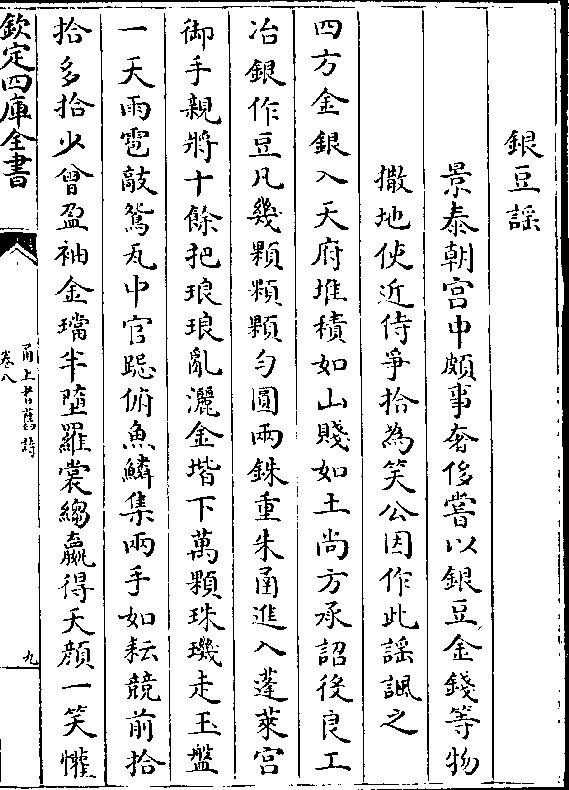 銀豆謡
景泰朝宫中頗事奢侈嘗以銀豆金錢等物
撒地使近侍爭拾為笑公因作此謡諷之
四方金銀入天府堆積如山賤如土尚方承詔後良工
冶銀作豆凡幾顆顆顆勻圓兩銖重朱函進入蓬萊宫
御手親將十餘把琅琅亂灑金堦下萬顆珠璣走玉盤
一天雨雹敲鴛瓦中官跽俯魚鱗集兩手如耘競前拾
拾多拾少曾盈袖金璫半墮羅裳縐贏得天顔一笑懽
欽定四庫全書
甬上耆舊詩
卷八
九